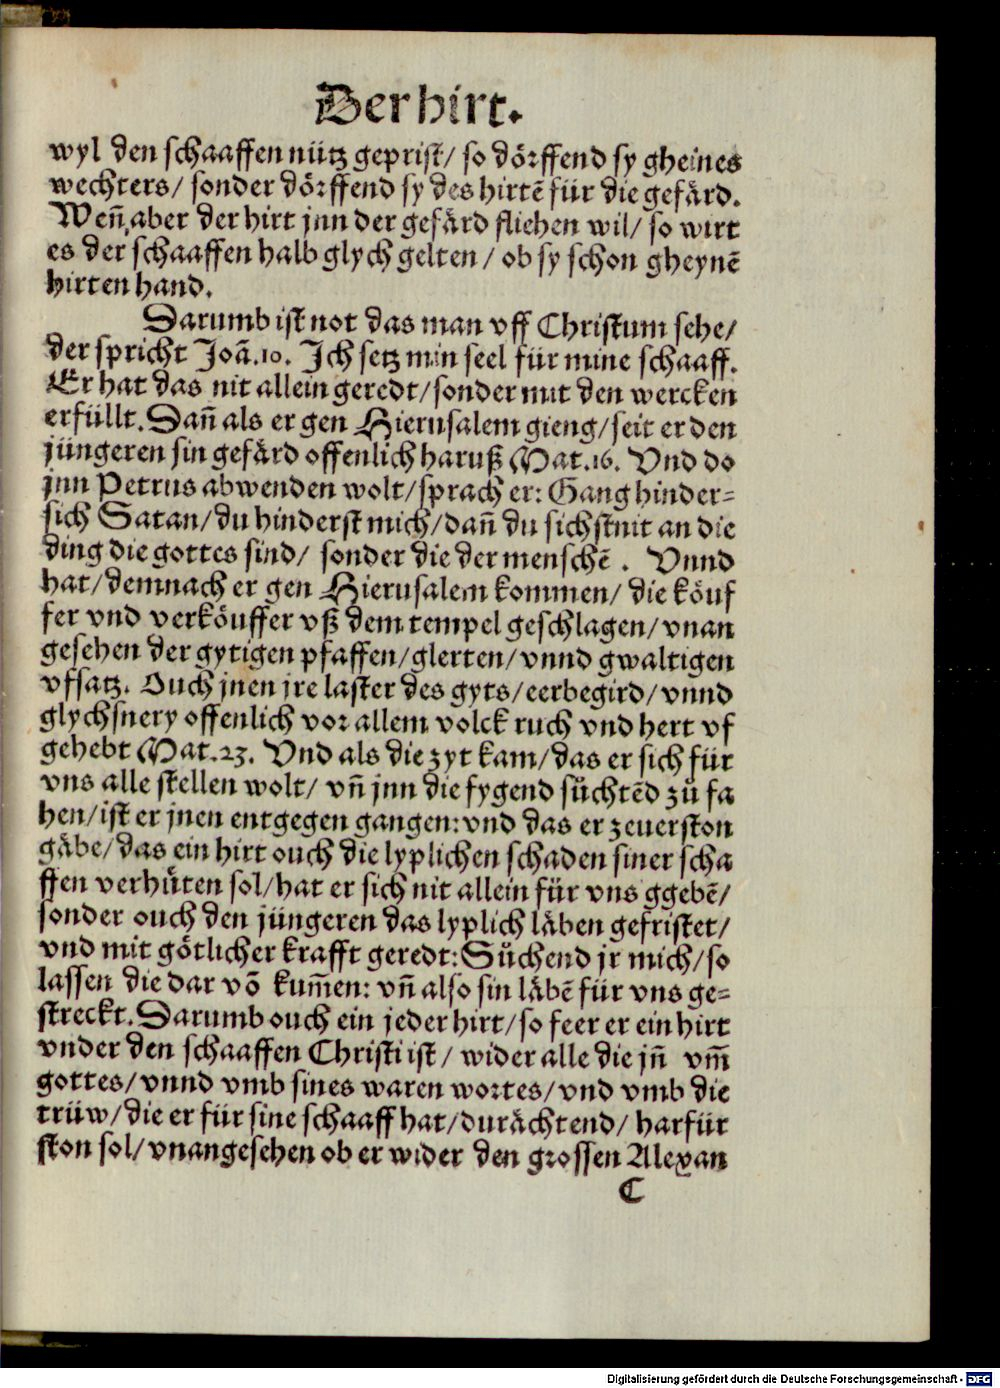 Der hirt.
wyl den schaaffen nütz geprist/ so dörffend sy gheines
wechters/ sonder dörffend sy des hirtē für die gefärd.
Weñ aber der hirt jnn der gefärd fliehen wil/ so wirt
es der schaaffen halb glych gelten/ ob sy schon gheynē
hirten hand.
Darumb ist not das man vff Christum sehe/
der spricht Joā.10. Ich setz min seel für mine schaaff.
Er hat das nit allein geredt/ sonder mit den wercken
erfüllt. Dañ als er gen Hierusalem gieng/ seit er den
jüngeren sin gefärd offenlich haruß Mat.16. Vnd do
jnn Petrus abwenden wolt/ sprach er: Gang hinder-
sich Satan/ du hinderst mich/ dañ du sichst nit an die
ding die gottes sind/ sonder die der menschē. Vnnd
hat/ demnach er gen Hierusalem kommen/ die köuf
fer vnd verköuffer vß dem tempel geschlagen/ vnan
gesehen der gytigen pfaffen/ glerten/ vnnd gwaltigen
vfsatz. Ouch jnen jre laster des gyts/ eerbegird/ vnnd
glychsnery offenlich vor allem volck ruch vnd hert vf
gehebt Mat.23. Vnd als die zyt kam/ das er sich für
vns alle stellen wolt/ vñ jnn die fygend sůchtēd zů fa
hen/ ist er jnen entgegen gangen: vnd das er zeuerston
gäbe/ das ein hirt ouch die lyplichen schaden siner scha
ffen verhüten sol/ hat er sich nit allein für vns ggebē/
sonder ouch den jüngeren das lyplich läben gefristet/
vnd mit götlicher krafft geredt: Sůchend jr mich/ so
lassen die dar vō kum̄en: vñ also sin läbē für vns ge-
streckt. Darumb ouch ein jeder hirt/ so feer er ein hirt
vnder den schaaffen Christi ist/ wider alle die jñ vm̄
gottes/ vnnd vmb sines waren wortes/ vnd vmb die
trüw/ die er für sine schaaff hat/ durächtend/ harfür
ston sol/ vnangesehen ob er wider den grossen Alexan
C
Digitalisierung gefördert durch die Deutsche Forschungsgemeinschaft - DFG